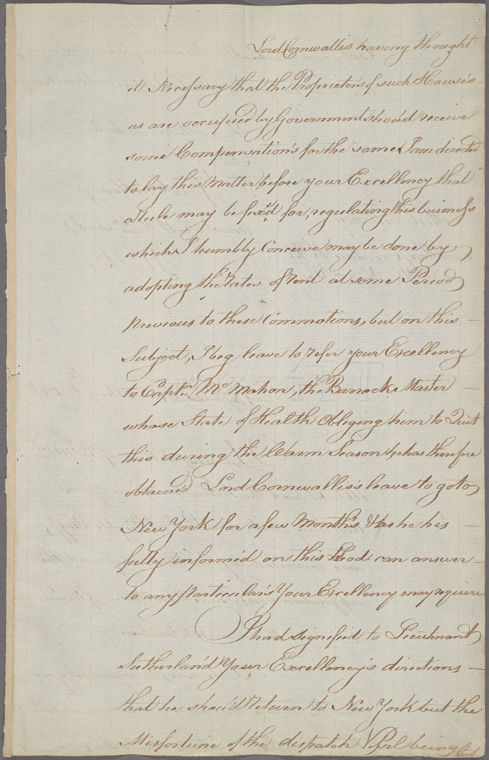 Lord Cornwallis having thought
it Necessary that the Proprietors of such Houses
as are occupied by Government shou'd receive
some Compensations for the same, I am directed
to lay this Matter before your Excellency that
a Rule may be fix'd for regulating this business
which I humbly Conceive may be done by
adopting the Rates of Rent at some Period
previous to these Commotions, but on this
Subject, I beg leave to refer your Excellency
to Capt.n Mc Mahon, the Barrack Master
whose State of Health Obliging him to Quit
this during the Warm Season, he has therefore
obtained Lord Cornwallis's leave to go to
New York for a few Months & as he is
fully inform'd on this head can answer
to any particulars Your Excellency may require
I had signified to Lieutenant
Sutherland Your Excellency's directions
that he shou'd return to New York but the
Misfortune of the dispatch Vessel being